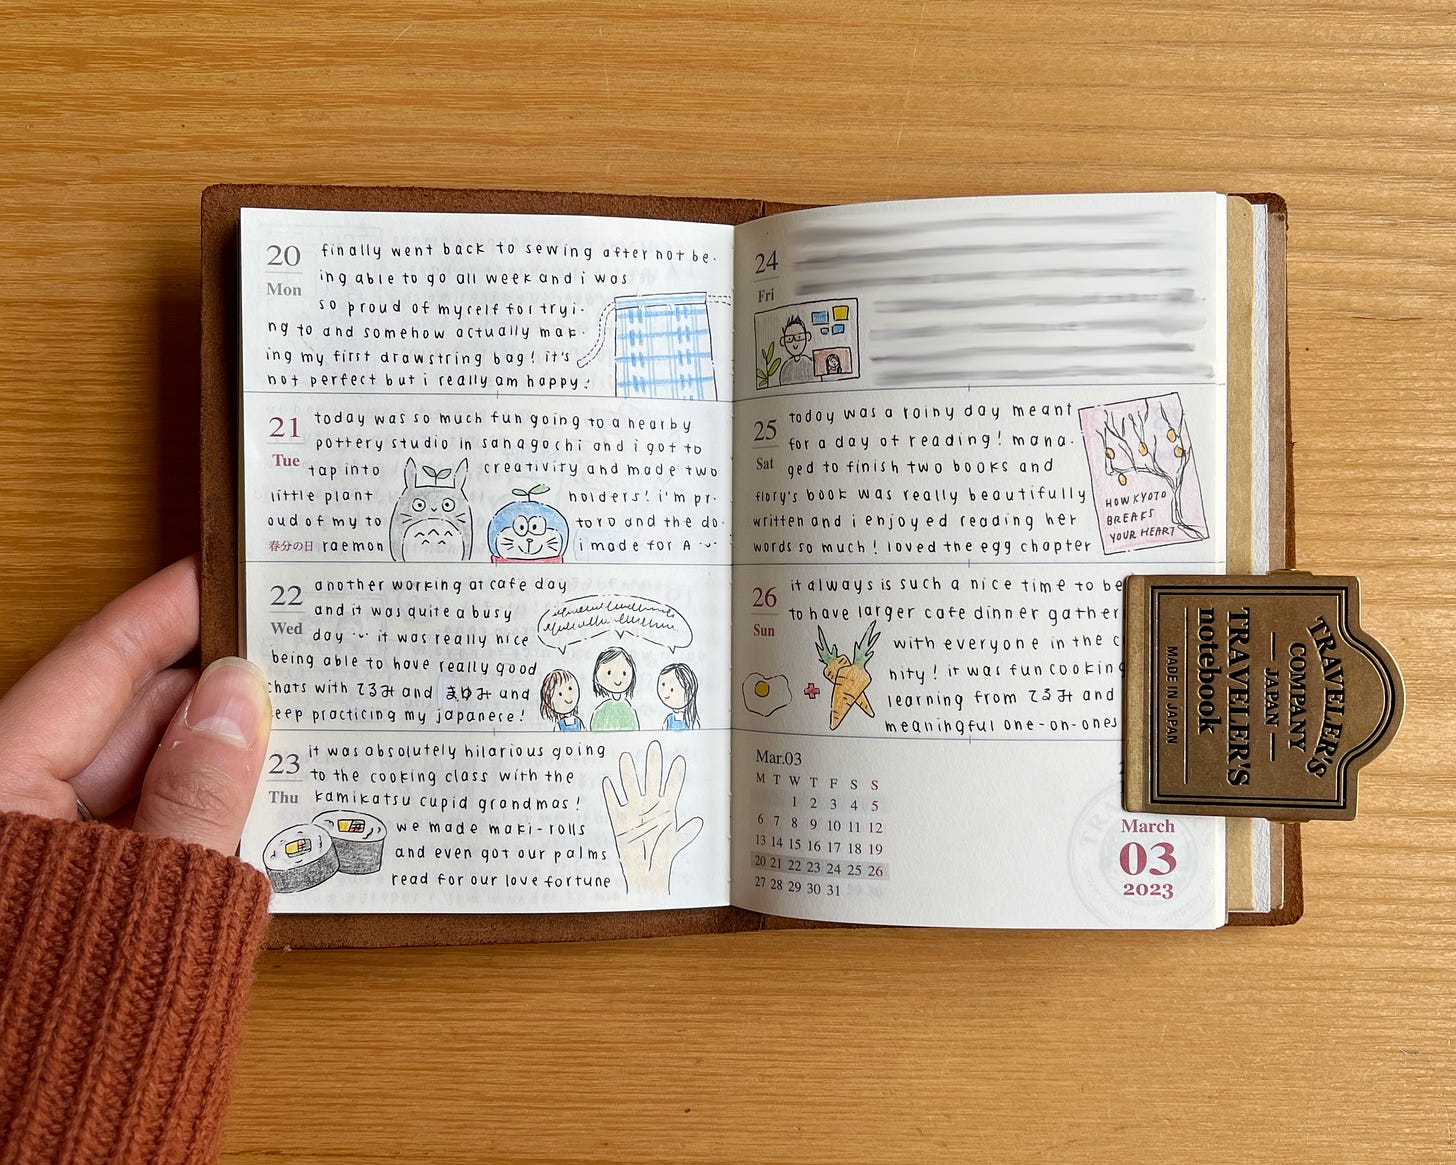 20
Mon
finally went back to sewing after not be-
ing able to go all week and i was
so proud of myself for tryi-
ng to and somehow actually mak-
ing my first drawstring bag! it's
not perfect but i really am happy:
21
Tue
春分の日
today was so much fun going to a nearby
pottery studio in sanagochi and i got to
tap into creativiry and made two
little plant holders! i'm pr-
oud of my to toro and the do-
raemon i made for A
22
Wed
another working at cafe day
and it was quite a busy
day it was really nice
being able to have really good
chats with てるみ and まゆみ and
eep practicing my japanese!
23
Thu
it was absolutely hilarious going
to the cooking class with the
kamikatsu cupid grandmas!
we made maki-rolls
and even got our palms
read for our love fortune
24
Fri
25
Sat
today was a rainy day meant
for a day of reading! mana-
ged to finish two books and
flory's book was really beautifully
written and i enjoyed reading her
words so much! loved the egg chapter
HOW KYOTO
BREAKS
YOUR HEART
26
Sun
it always is such a nice time to be
to have larger cafe dinner gather
with everyone in the c
nity! it was fun cooking
learning from てるみ and
meaningful one-on-ones
Mar.03
M T W T F S S
1 2 3 4 5
6 7 8 9 10 11 12
13 14 15 16 17 18 19
20 21 22 23 24 25 26
27 28 29 30 31
March
03
2023
TRAVELER'S
COMPANY
JAPAN
TRAVELER'S
notebook
MADE IN JAPAN